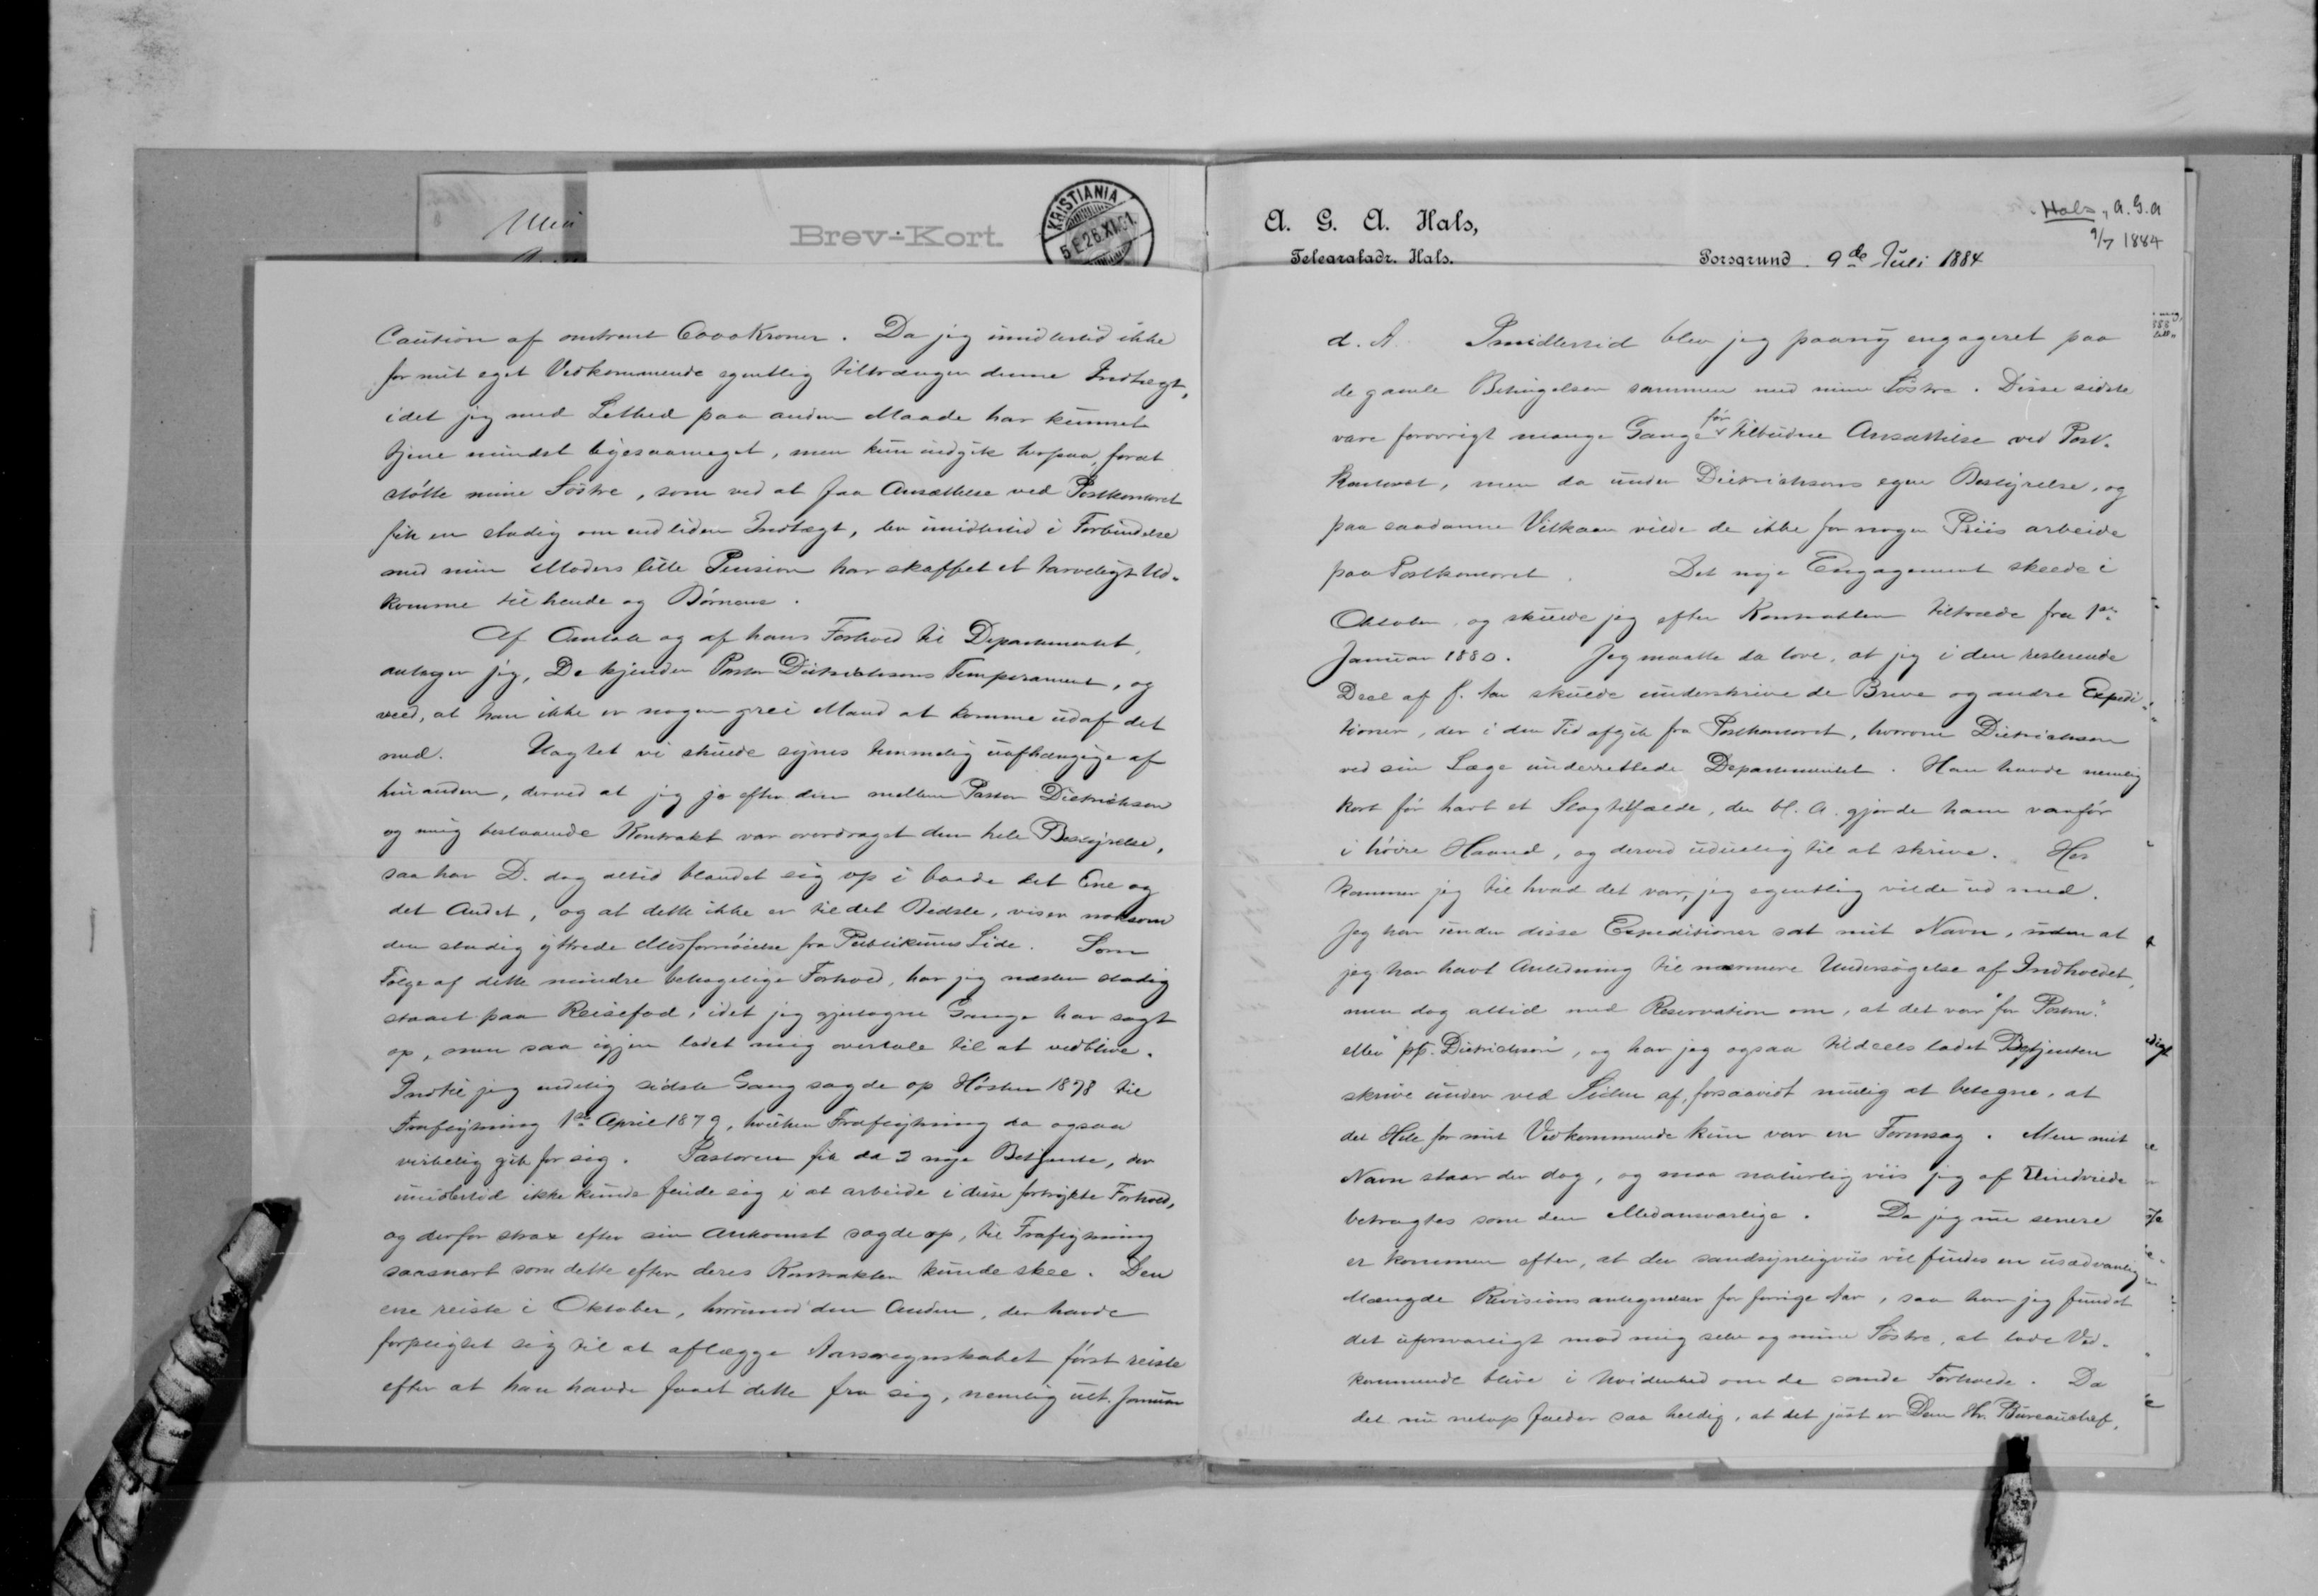 Brev-Kort.
KRISTIANIA
26 XI 01
Caution af omtrent 6000 Kroner. Da jeg imidlertid ikke
for mit eget Vedkommende egentlig tiltrænger denne Indtægt,
idet jeg med Lethed paa anden Maade har kunnet
tjene mindst ligesaameget, men kun indgik herpaa, forat
støtte mine Søstre, som ved at faa Ansættelse ved Postkontoret
fik en stadig om end liden Indtægt, der imidlertid i Forbindelse
med min Moders lille Pension har skaffet et tarveligt Ud-
komme til hende og Børnene.
Af Omtale og af hans Forhold til Departementet,
antager jeg, De kjender Pastor Dietrichsons Temperament, og
veed, at han ikke er nogen grei Mand at komme ud af det
med. Uagtet vi skulde synes temmelig uafhængige af
hinanden, derved at jeg jo efter den mellem Pastor Dietrichson
og mig bestaaende Kontrakt var overdraget den hele Bestyrelse,
saa har D. dog altid blandet sig op i baade det Ene og
det Andet, og at dette ikke er til det Bedste, viser noksom
den stadig yttrede Misfornøielse fra Publikums Side. Som
Følge af dette mindre behagelige Forhold, har jeg næsten stadig
staaet paa Reisefod, idet jeg gjentagne Gange har sagt
op, men saa igjen ladet mig overtale til at vedblive.
Indtil jeg endelig sidste Gang sagde op Høsten 1878 til
Fraflytning 1ste April 1879, hvilken Fraflytning da ogsaa
virkelig gik for sig. Pastoren fik da 2 nye Betjente, der
imidlertid ikke kunde finde sig i at arbeide i disse fortrykte Forhold,
og derfor strax efter sin Ankomst sagde op, til Fraflytning
saasnart som dette efter deres Kontrakter kunde skee. Den
ene reiste i Oktober, hvorimod den Anden, der havde
forpligtet sig til at aflægge Aarsregnskabet først reiste
efter at han havde faaet dette fra sig, nemlig ult. Januar
A. G. A. Hals,
Telegrafadr. Hals.
Porsgrund 9de Juli 1884
Hals, A. G. A
9/7 1884
d. A. Imidlertid blev jeg paany engageret paa
de gamle Betingelser sammen med mine Søstre. Disse sidste
vare forøvrigt mange Gange før tilbudne Ansættelse ved Post-
kontoret, men da under Dietrichsons egen Bestyrelse, og
paa saadanne Vilkaar vilde de ikke for nogen Priis arbeide
paa Postkontoret. Det nye Engagement skeede i
Oktober, og skulde jeg efter Kontrakten tiltræde fra 1ste
Januar 1880. Jeg maatte da love, at jeg i den resterende
Deel af f. Aar skulde underskrive de Breve og andre Expedi-
tioner, der i den Tid afgik fra Postkontoret, hvorom Dietrichson
ved sin Læge underrettede Departementet. Han havde nemlig
kort før havt et Slagtilfælde, der bl. A. gjorde ham vanfør
i høire Haand, og derved uduelig til at skrive. Her
kommer jeg til hvad det var, jeg egentlig vilde ud med.
Jeg har under disse Expeditioner sat mit Navn, uden at
jeg har havt Anledning til nærmere Undersøgelse af Indholdet,
men dog altid med Reservation om, at det var "for Postm."
eller "pp. Dietrichson", og har jeg ogsaa tildeels ladet Betjenten
skrive under ved Siden af, forsaavidt mulig at betegne, at
det Hele for mit Vedkommende kun var en Formsag. Men mit
Navn staar der dog, og maa naturligviis jeg af Uindviede
betragtes som den Medansvarlige. Da jeg nu senere
er kommen efter, at der sandsynligviis vil findes en usædvanlig
Mængde Revisionsantegnelser for forrige Aar, saa har jeg fundet
det uforsvarligt mod mig selv og mine Søstre, at lade Ved-
kommende blive i Uvidenhed om de sande Forholde. Da
det nu netop falder saa heldig, at det just er Dem Hr. Bureauchef,